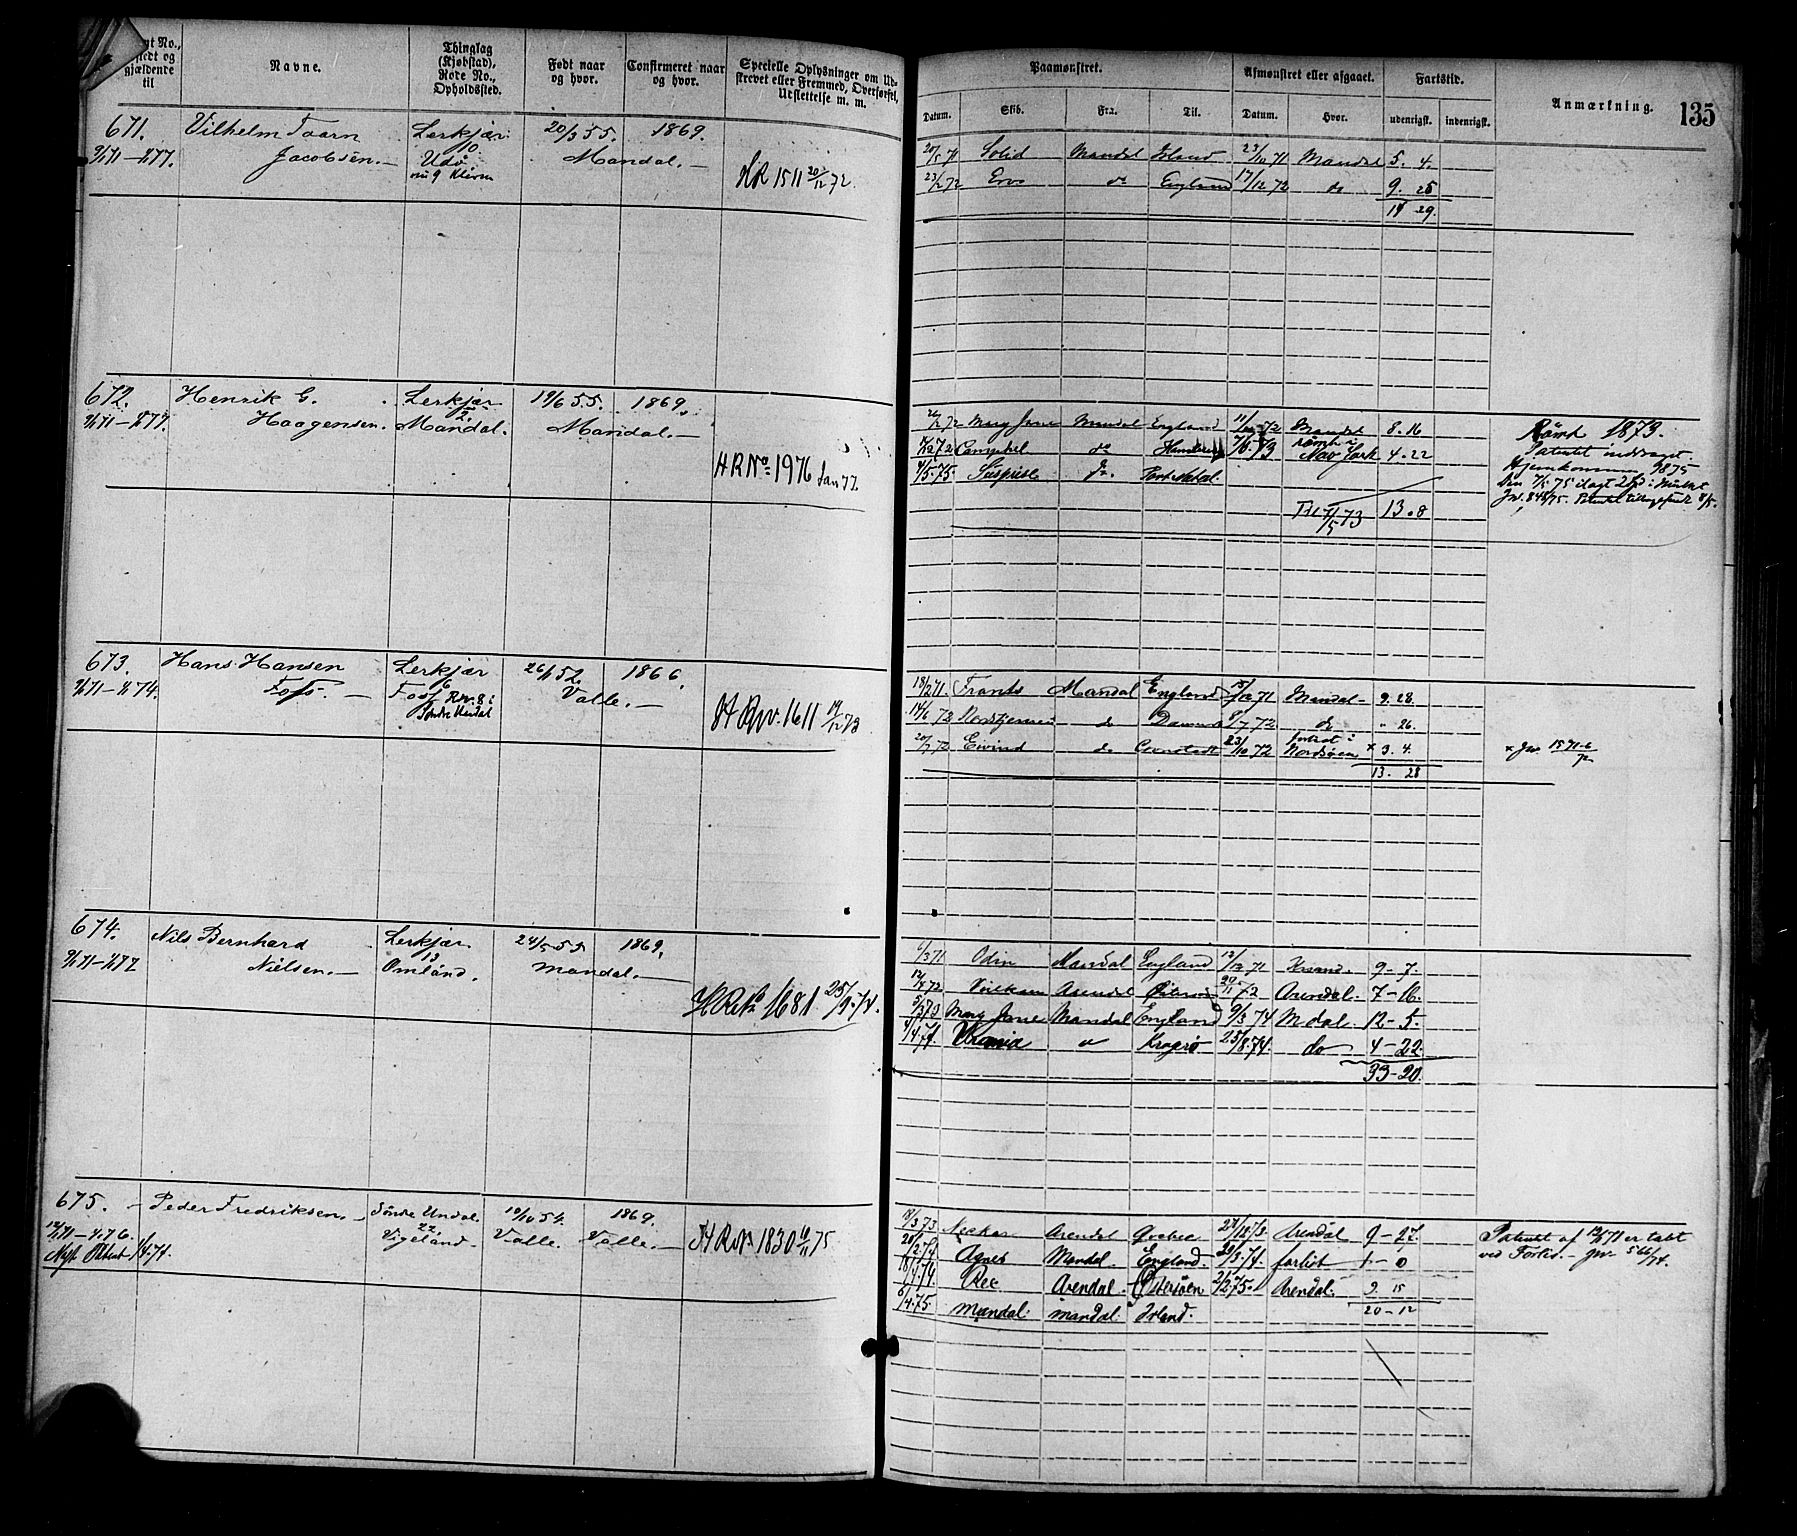 nt No.,
stedt og
gjældende
til
Navne.
Thinglag
(Kjøbstad),
Rode No.,
Opholdssted.
Født naar
og hvor.
Confirmeret naar
og hvor.
Specielle Oplysninger om Ud-
skrevet eller Fremmed, Overførsel,
Udslettelse m. m.
Paamønstret.
Afmønstret eller afgaaet.
Fartstid.
Anmærkning.
135
Datum.
Skib.
Fra.
Til.
Datum.
Hvor.
udenrigsk.
indenrigsk.
671. Vilhelm Taarn Lerkjær 20/3 55. 1869.
Jacobsen. 10 Udö Mandal.
HR 1511 20/12 72.
20/5 71 Solid Mandal Irland 23/10 71 Mandal 5. 4.
23/2 72 Eros do England 17/12 72 do 9. 25
14 29.
672. Henrik G. Lerkjær 19/6 55. 1869.
Haagensen. 2. Mandal. Mandal.
HR No 1976 Jan 77.
26/2 72 Mary Jane Mandal England 11/12 72 Mandal 8. 16
do 7/6 73 rømt i New York 4. 22
4/5. 75 do
Til 7/5 73 13. 8
Rømt 1873.
Patentet inddraget.
Hjemkommen 1875
673. Hans Hansen Lerkjær 26/1 52. 1866.
Foss. 6 Foss Valle.
Rno. 8 i
Søndre Undal
HRNo. 1611 19/12 73
18/2 71. Frants Mandal England 15/12 71 Mandal 9. 28.
14/6 72 do 9/7 72 do " 26.
20/7 72 Eivind do Cronstadt 23/10 72 forlist i Nordsøen × 3. 4.
13. 28
× Jw. 1571-6/72
674. Nils Bernhard Lerkjær 24/5 55. 1869.
Nielsen. 13 Omland. Mandal.
HRNo 1681 25/9. 74.
6/3 71 Odin Mandal England 12/12 71 Krsand. 9-7.
12/4 72 Arendal 20/11 72 Arendal. 7-16.
5/3 73 Mary Jane Mandal England 9/3 74 Mdal. 12-5.
4/4. 74 Urania " Kragerø 25/8. 74 do 4-22.
33-20.
675. Peder Fredriksen. Søndre Undal 19/10 54. 1869.
22 Vigeland. Valle. Valle.
HRNo 1830 6/11 75
18/3 73 Neckar Arendal Quebec 27/12 73 Arendal 9-27.
Agnes Mandal England. 29/3. 74. forlist 1-0
Rec Arendal. Østersøen 2/2 75. Arendal. 9. 15
6/4. 75. Mandal. Mandal. Irland. 20-12
Patentet af 12/1 71 er tabt
ved Forlis. - Jw. 566/74.